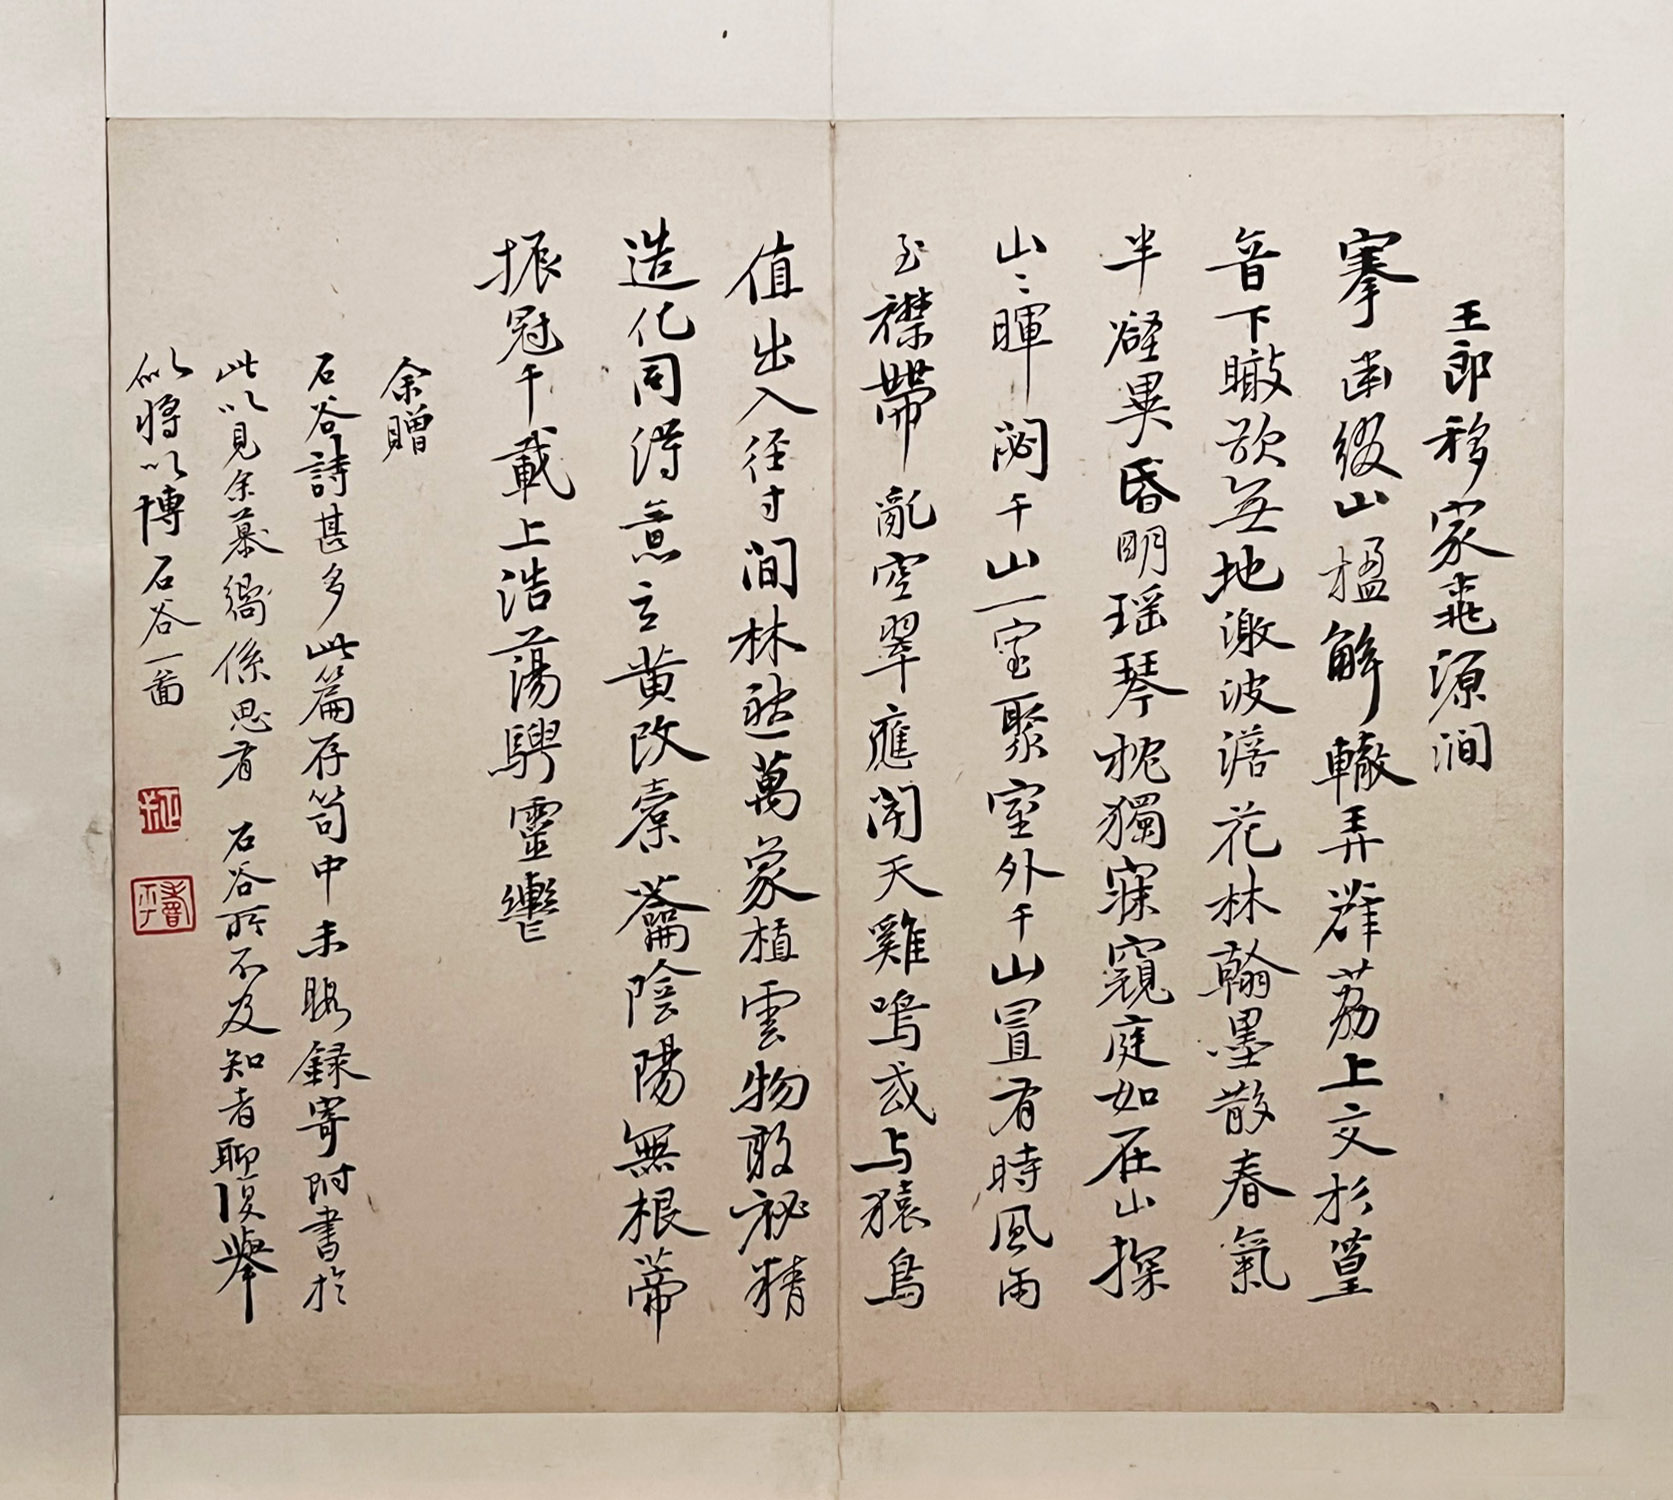 王郎移家桃源澗
搴幽綴山楹解轍弄群荔上文杉篁
音下瞰欲無地激波澹花林翰墨散春氣
半壑異昏明瑶琴枕獨寐窺庭如在山探
山〻暉閟千山一室聚室外千山置有時風雨
至襟帶亂空翠應聞天雞鳴或与猿鳥
值出入径寸間林巒萬象植雲物敢祕精
造化同得意玄黄改橐籥陰陽無根蒂
振冠千載上浩蕩騁靈轡
余贈
石谷詩甚多此篇存笥中未暇録寄附書於
此以見余慕嚮係思有 石谷所不及知者聊復舉
似将以博石谷一畣
壽平